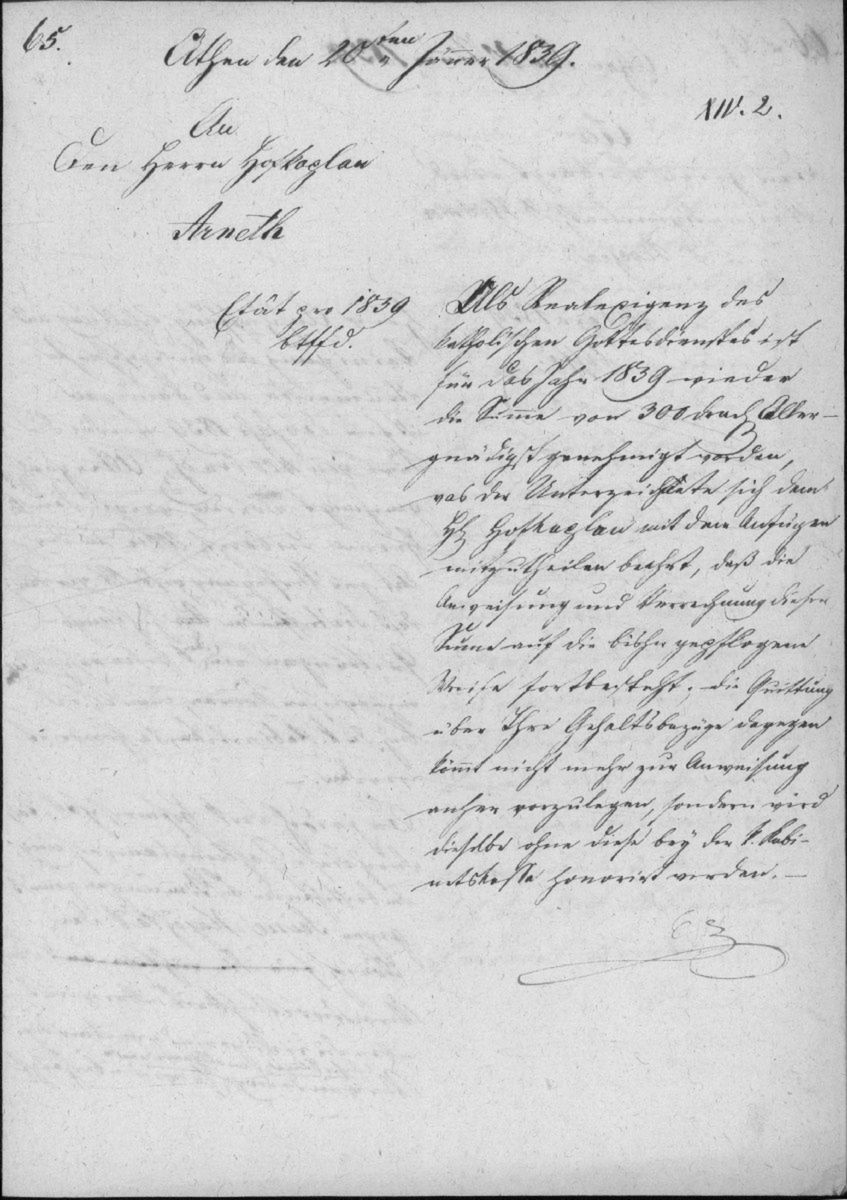 65.
Athen den 20ten Jänner 1839.
XIV. 2.
An
Den Herrn Hofkaplan
Arneth
Etât pro 1839
btffd.
Als Realexigenz des
katholischen Gottesdienstes ist
für das Jahr 1839 wieder
die Summe von 300 drach Aller-
gnädigst genehmigt worden,
was der Unterzeichnete sich dem
H Hofkaplan mit dem Anfügen
mitzutheilen beehrt, daß die
Anweisung und Verrechnung dieser
Summe auf die bisher gepflogene
Weise fortbesteht; die Quittung
über Ihre Gehaltsbezüge dagegen
kömmt nicht mehr zur Anweisung
anher vorzulegen, sondern wird
dieselbe ohne diese bey der k. Kabi-
netskasse honorirt werden. —